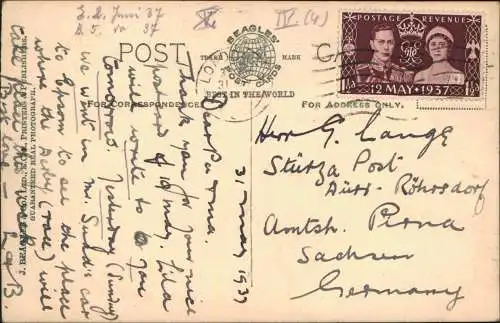 E. d. Juni 37
B. 5. 37
IV. (4)
POST
BEAGLES'
POST CARDS
TRADE MARK
BEST IN THE WORLD
FOR CORRESPONDENCE
FOR ADDRESS ONLY.
POSTAGE REVENUE
12 MAY 1937
31 May 1937
Dear Pa & Ma.
Thank you for your nice
postcard of 10 May. Lila
will write to you
tomorrow. Yesterday (Sunday)
we went in Mr. car
to Epsom to see the place
where the Derby (race) will
take place
Best love
L & B
J. BEAGLES & CO., LTD.,
GUARANTEED REAL PHOTOGRAPH.
Herr G. Lange
Stürza Post
Dürr-Röhrsdorf
Amtsh. Pirna
Sachsen
Germany